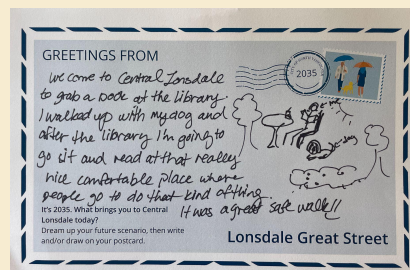 GREETINGS FROM
We come to Central Lonsdale
to grab a book at the library.
I walked up with my dog and
after the library I'm going to
go sit and read at that really
nice comfortable place where
people go to do that kind of thing.
It was a great safe walk!!
2035
It's 2035. What brings you to Central
Lonsdale today?
Dream up your future scenario, then write
and/or draw on your postcard.
Lonsdale Great Street